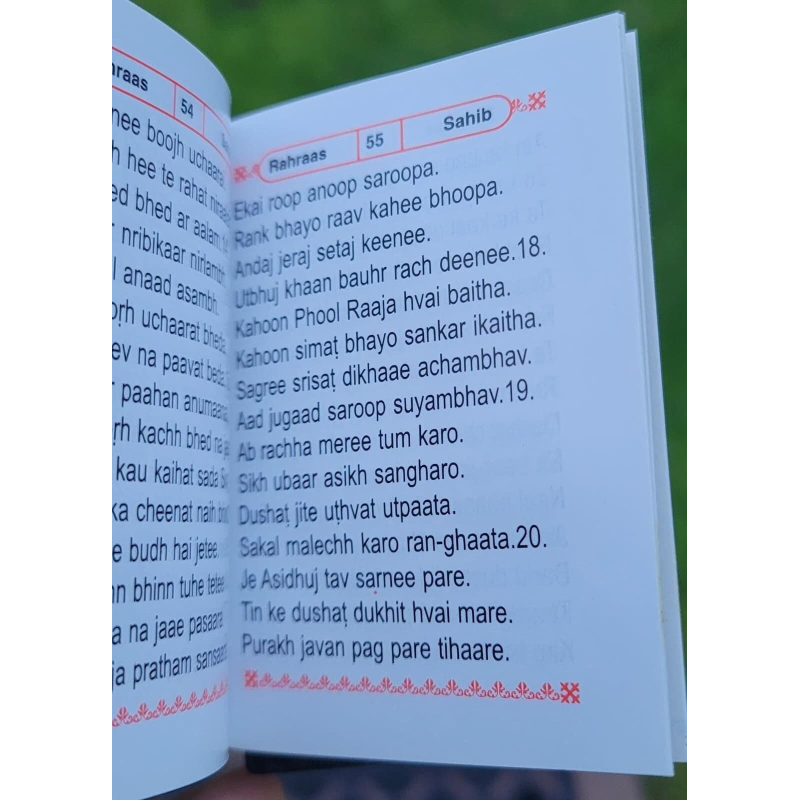 54
nee boojh uchaara
h hee te rahat
ed bhed ar aalam
nribikaar
anaad asambh.
uchaarat
ev na paavat
paahan
kachh bhed na
kau kaihat sada
ka cheenat naih
e budh hai jetee.
bhinn tuhe
a na jaae pasaara
ja pratham
Rahraas 55 Sahib
Ekai roop anoop saroopa.
Rank bhayo raav kahee bhoopa.
Andaj jeraj setaj keenee.
Utbhuj khaan bauhr rach deenee.18.
Kahoon Phool Raaja hvai baitha.
Kahoon simaṭ bhayo sankar ikaitha.
Sagree srisaṭ dikhaae achambhav.
Aad jugaad saroop suyambhav.19.
Ab rachha meree tum karo.
Sikh ubaar asikh sangharo.
Dushaṭ jite uṭhvat utpaata.
Sakal malechh karo ran-ghaata.20.
Je Asidhuj tav sarnee pare.
Tin ke dushaṭ dukhit hvai mare.
Purakh javan pag pare tihaare.